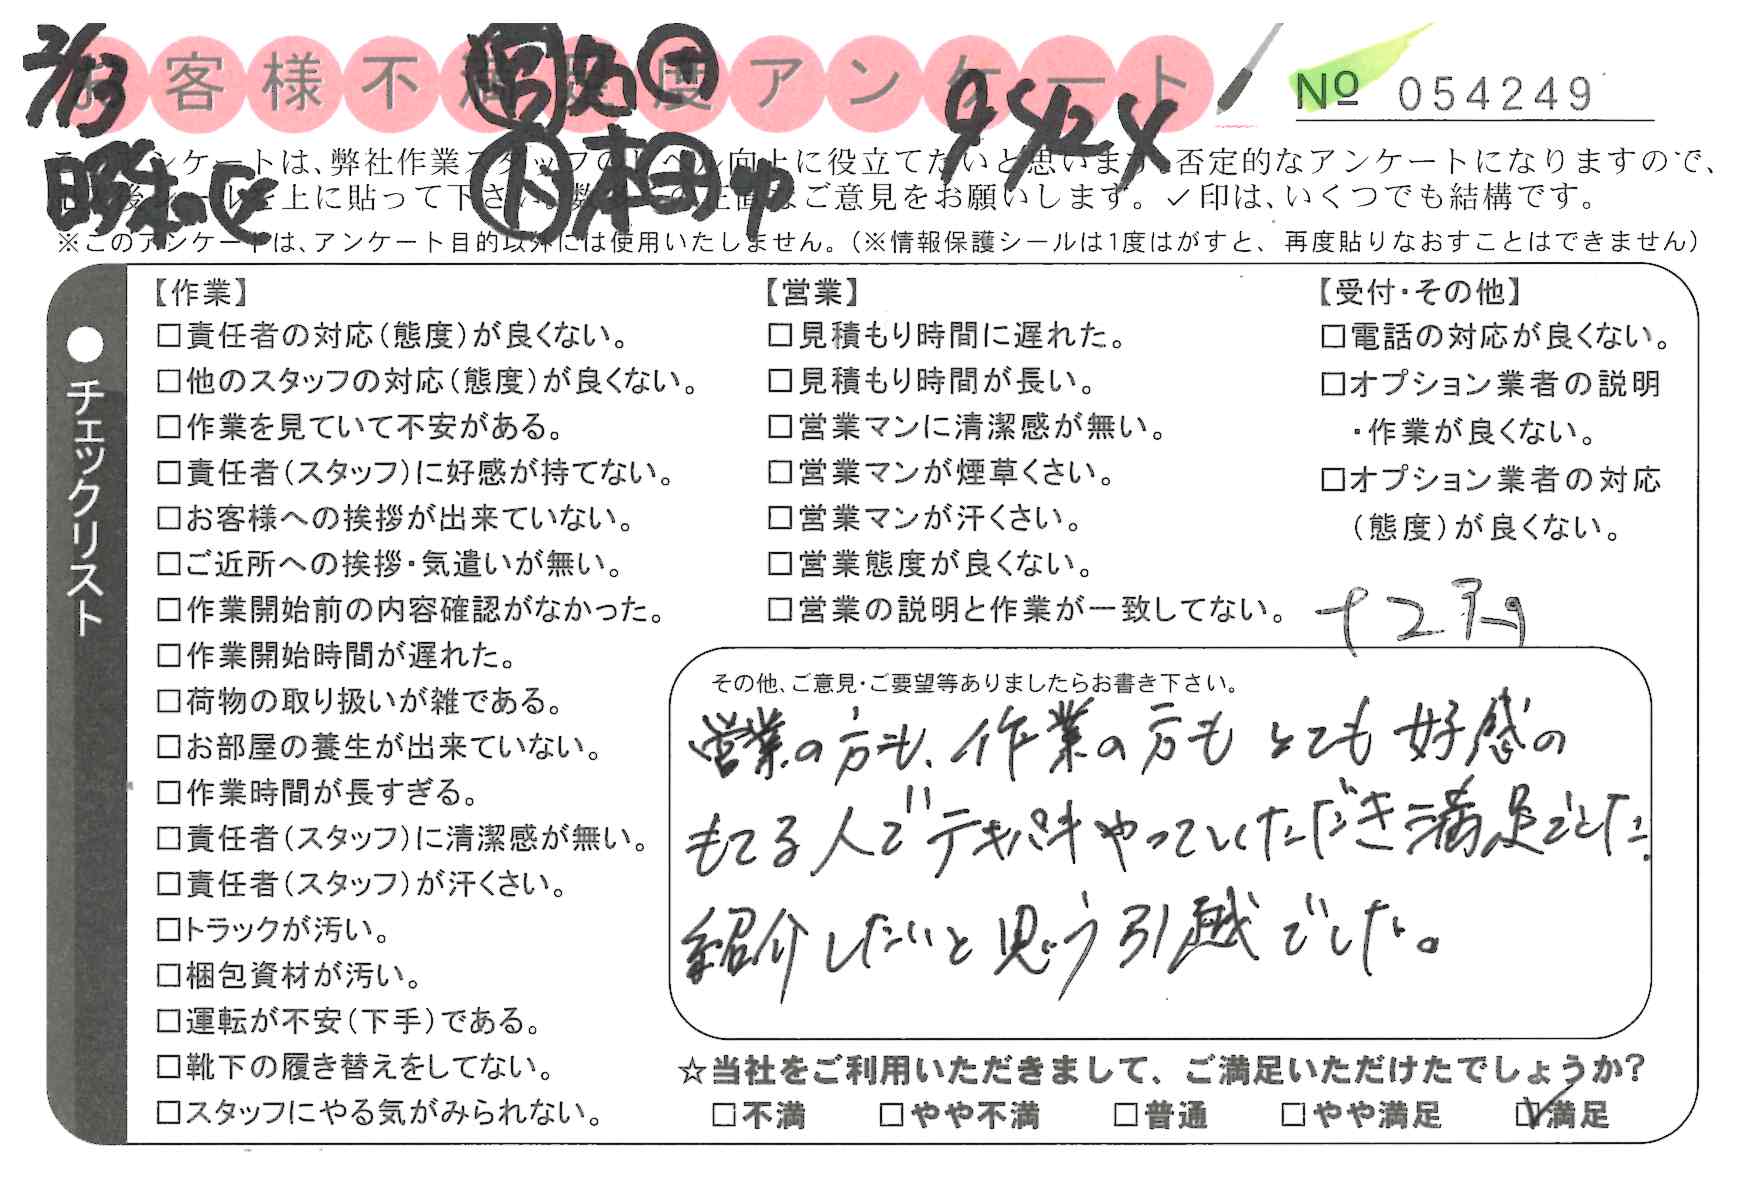 2/13
お客様不満足度アンケート
No 054249
このアンケートは、弊社作業スタッフのレベル向上に役立てたいと思います。否定的なアンケートになりますので、
上に貼って下さい。ご意見をお願いします。✓印は、いくつでも結構です。
※このアンケートは、アンケート目的以外には使用いたしません。(※情報保護シールは1度はがすと、再度貼りなおすことはできません)
●チェックリスト
【作業】
□責任者の対応(態度)が良くない。
□他のスタッフの対応(態度)が良くない。
□作業を見ていて不安がある。
□責任者(スタッフ)に好感が持てない。
□お客様への挨拶が出来ていない。
□ご近所への挨拶・気遣いが無い。
□作業開始前の内容確認がなかった。
□作業開始時間が遅れた。
□荷物の取り扱いが雑である。
□お部屋の養生が出来ていない。
□作業時間が長すぎる。
□責任者(スタッフ)に清潔感が無い。
□責任者(スタッフ)が汗くさい。
□トラックが汚い。
□梱包資材が汚い。
□運転が不安(下手)である。
□靴下の履き替えをしてない。
□スタッフにやる気がみられない。
【営業】
□見積もり時間に遅れた。
□見積もり時間が長い。
□営業マンに清潔感が無い。
□営業マンが煙草くさい。
□営業マンが汗くさい。
□営業態度が良くない。
□営業の説明と作業が一致してない。
【受付・その他】
□電話の対応が良くない。
□オプション業者の説明
・作業が良くない。
□オプション業者の対応
(態度)が良くない。
その他、ご意見・ご要望等ありましたらお書き下さい。
営業の方も、作業の方もとても好感の
もてる人でテキパキやっていただき満足でした。
紹介したいと思う引越でした。
☆当社をご利用いただきまして、ご満足いただけたでしょうか?
□不満 □やや不満 □普通 □やや満足 ☑満足